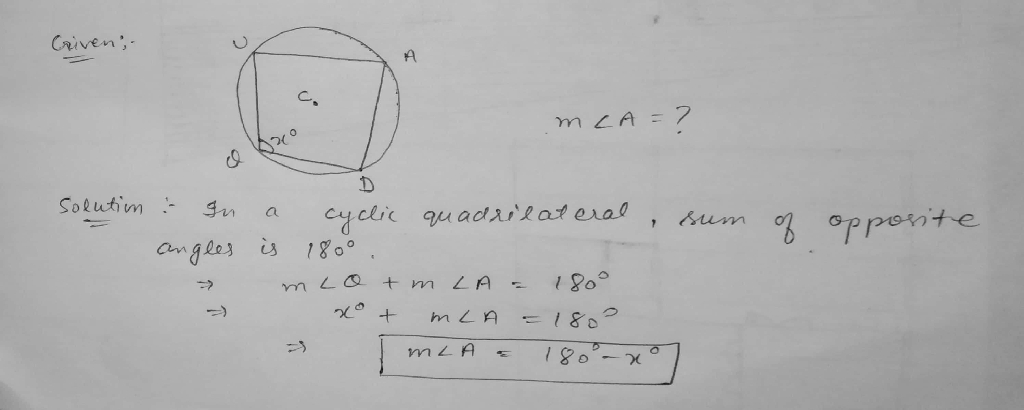 Given :-
U
A
C.
m∠A = ?
x°
Q
D
Solution :- In a cyclic quadrilateral , sum of opposite
angles is 180°.
⇒ m∠Q + m∠A = 180°
⇒ x° + m∠A = 180°
⇒ m∠A = 180° - x°